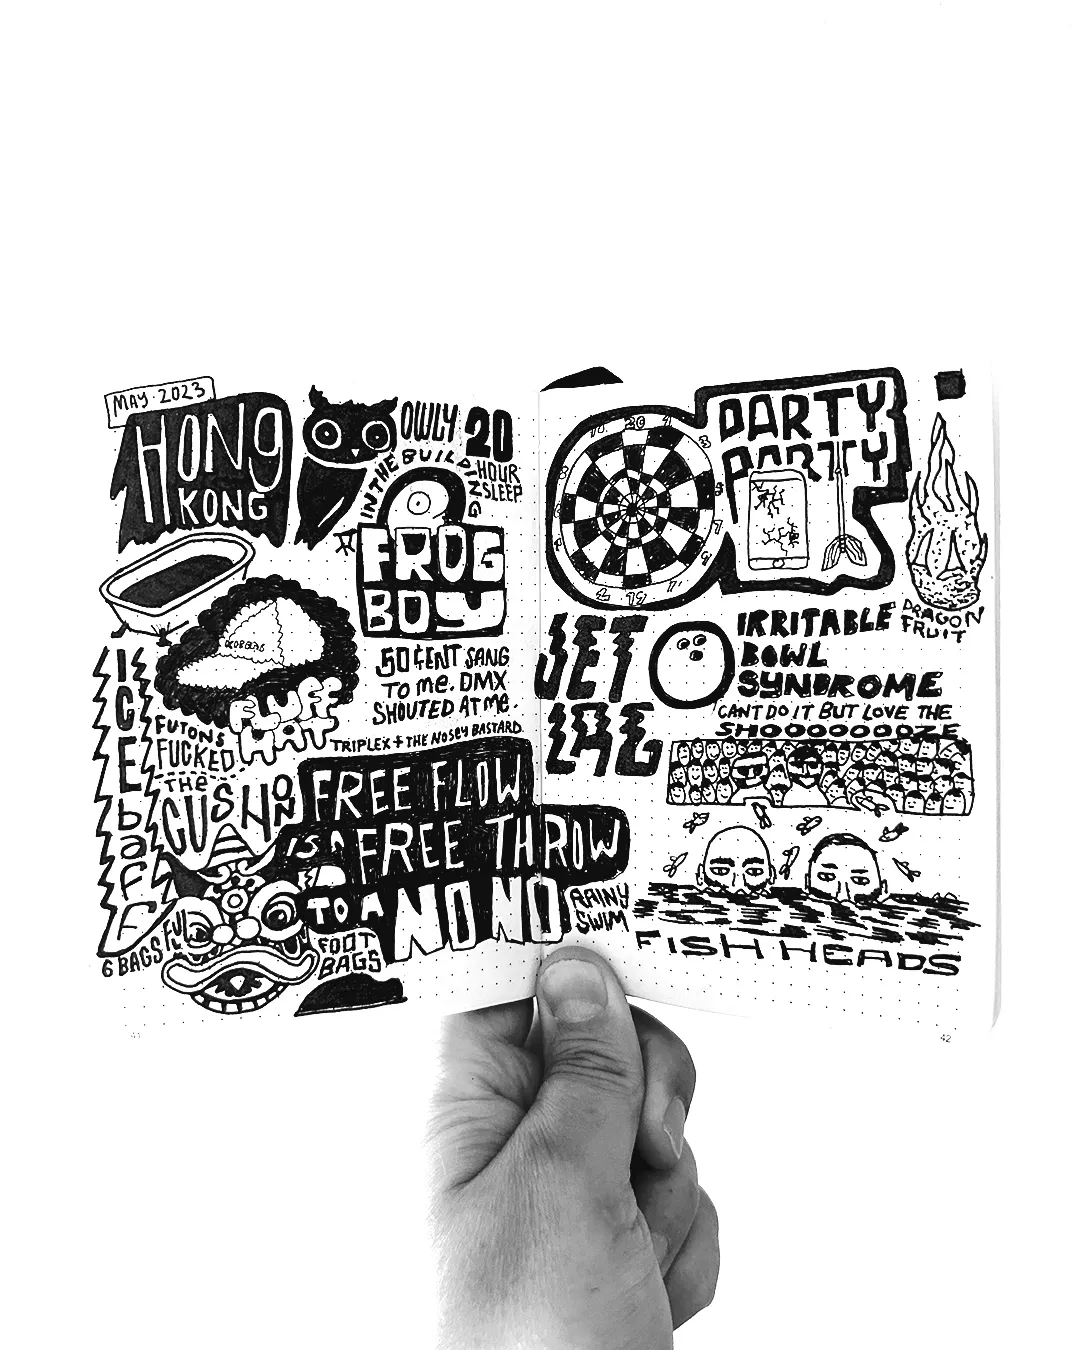 MAY · 2023
HONG
KONG
OWLY
IN THE BUILDING
20
HOUR
SLEEP
FROG
BOY
50 CENT SANG
TO ME. DMX
SHOUTED AT ME.
TRIPLEX + THE NOSEY BASTARD.
ICE baFF
FLUFF
HAT
FUTONS
FUCKED
THE
CUSHON
FREE FLOW
IS A FREE THROW
TO A NO NO
6 BAGS
FULL
FOOT
BAGS
RAINY
SWIM
PARTY
PARTY
20
DRAGON
FRUIT
JET
LAG
IRRITABLE
BOWL
SYNDROME
CANT DO IT BUT LOVE THE
SHOOOOOOOZE
FISH HEADS
42